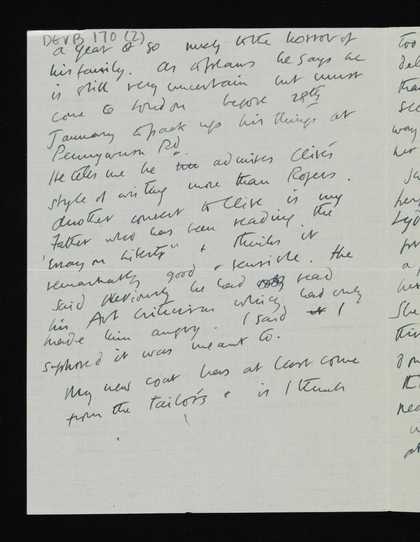 DEVB 170 (2)
a year & so much to the horror of
his family. As to plans he says he
is still very uncertain but must
come to London before 28th
January to pack up his things at
Pennywern Rd.
He tells me he admires Clive's
style of writing more than Rogers.
Another convert to Clive is my
father who has been reading the
"Essay on Liberty" & thinks it
remarkably good & sensible. He
said previously he had only read
his Art Criticism which had only
made him angry. I said I
supposed it was meant to.
My new coat has at last come
from the tailor's & is I think
Too